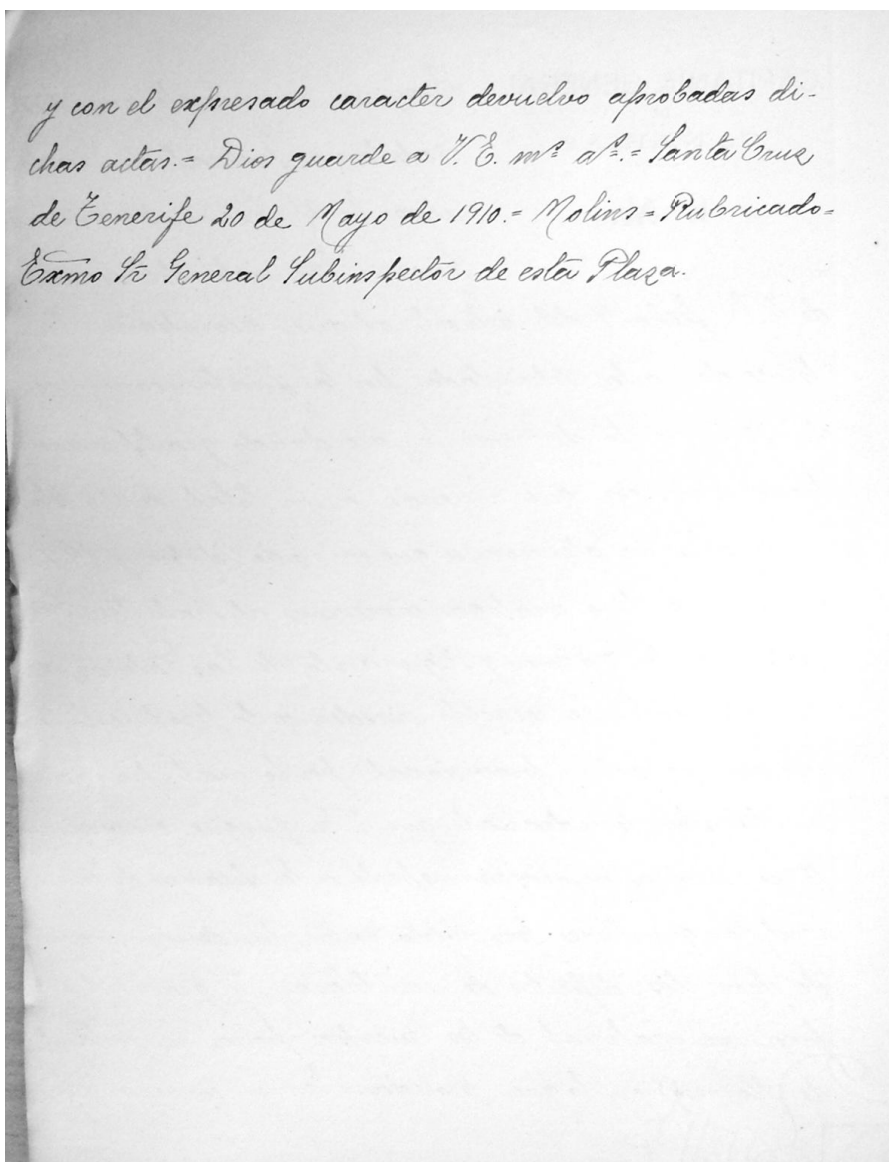 y con el expresado caracter devuelvo aprobadas di-
chas actas.= Dios guarde a V. E. mˢ aˢ.= Santa Cruz
de Tenerife 20 de Mayo de 1910.= Molins = Rubricado=
Exmo Sr General Subinspector de esta Plaza.